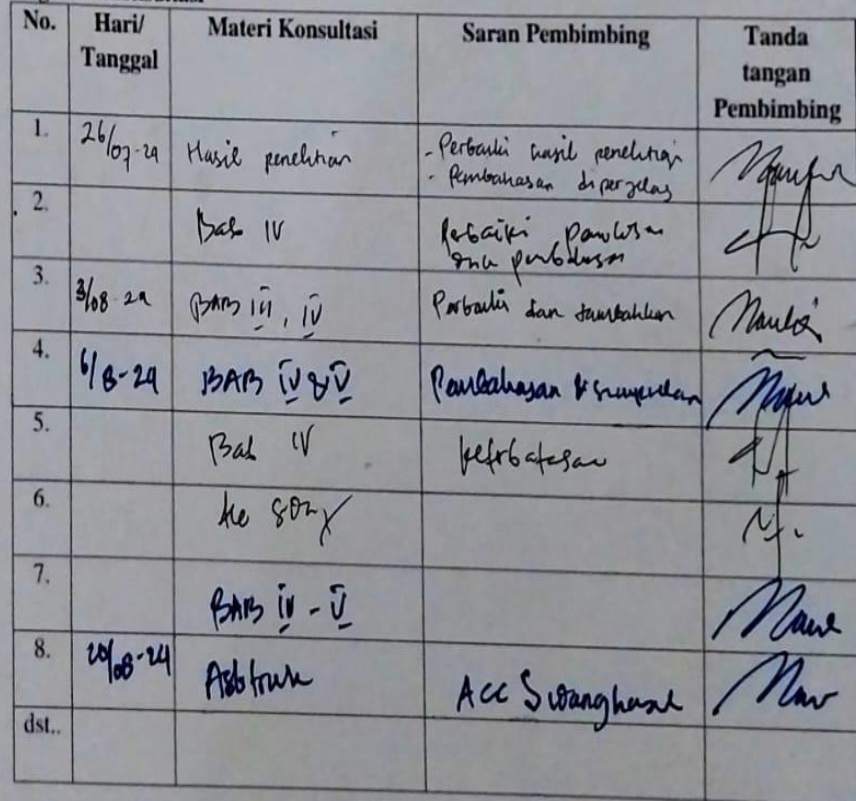 No. Hari/ Tanggal Materi Konsultasi Saran Pembimbing Tanda tangan Pembimbing
1. 26/07-24 Hasil penelitian - Perbaiki hasil penelitian
- Pembahasan diperjelas
2. Bab IV Perbaiki
3. 3/08-24 BAB III, IV Perbaiki dan tambahkan
4. 6/8-24 BAB IV & V Pembahasan &
5. Bab IV keterbatasan
6.
7. BAB IV - V
8. 20/08-24 Abstrak ACC
dst..